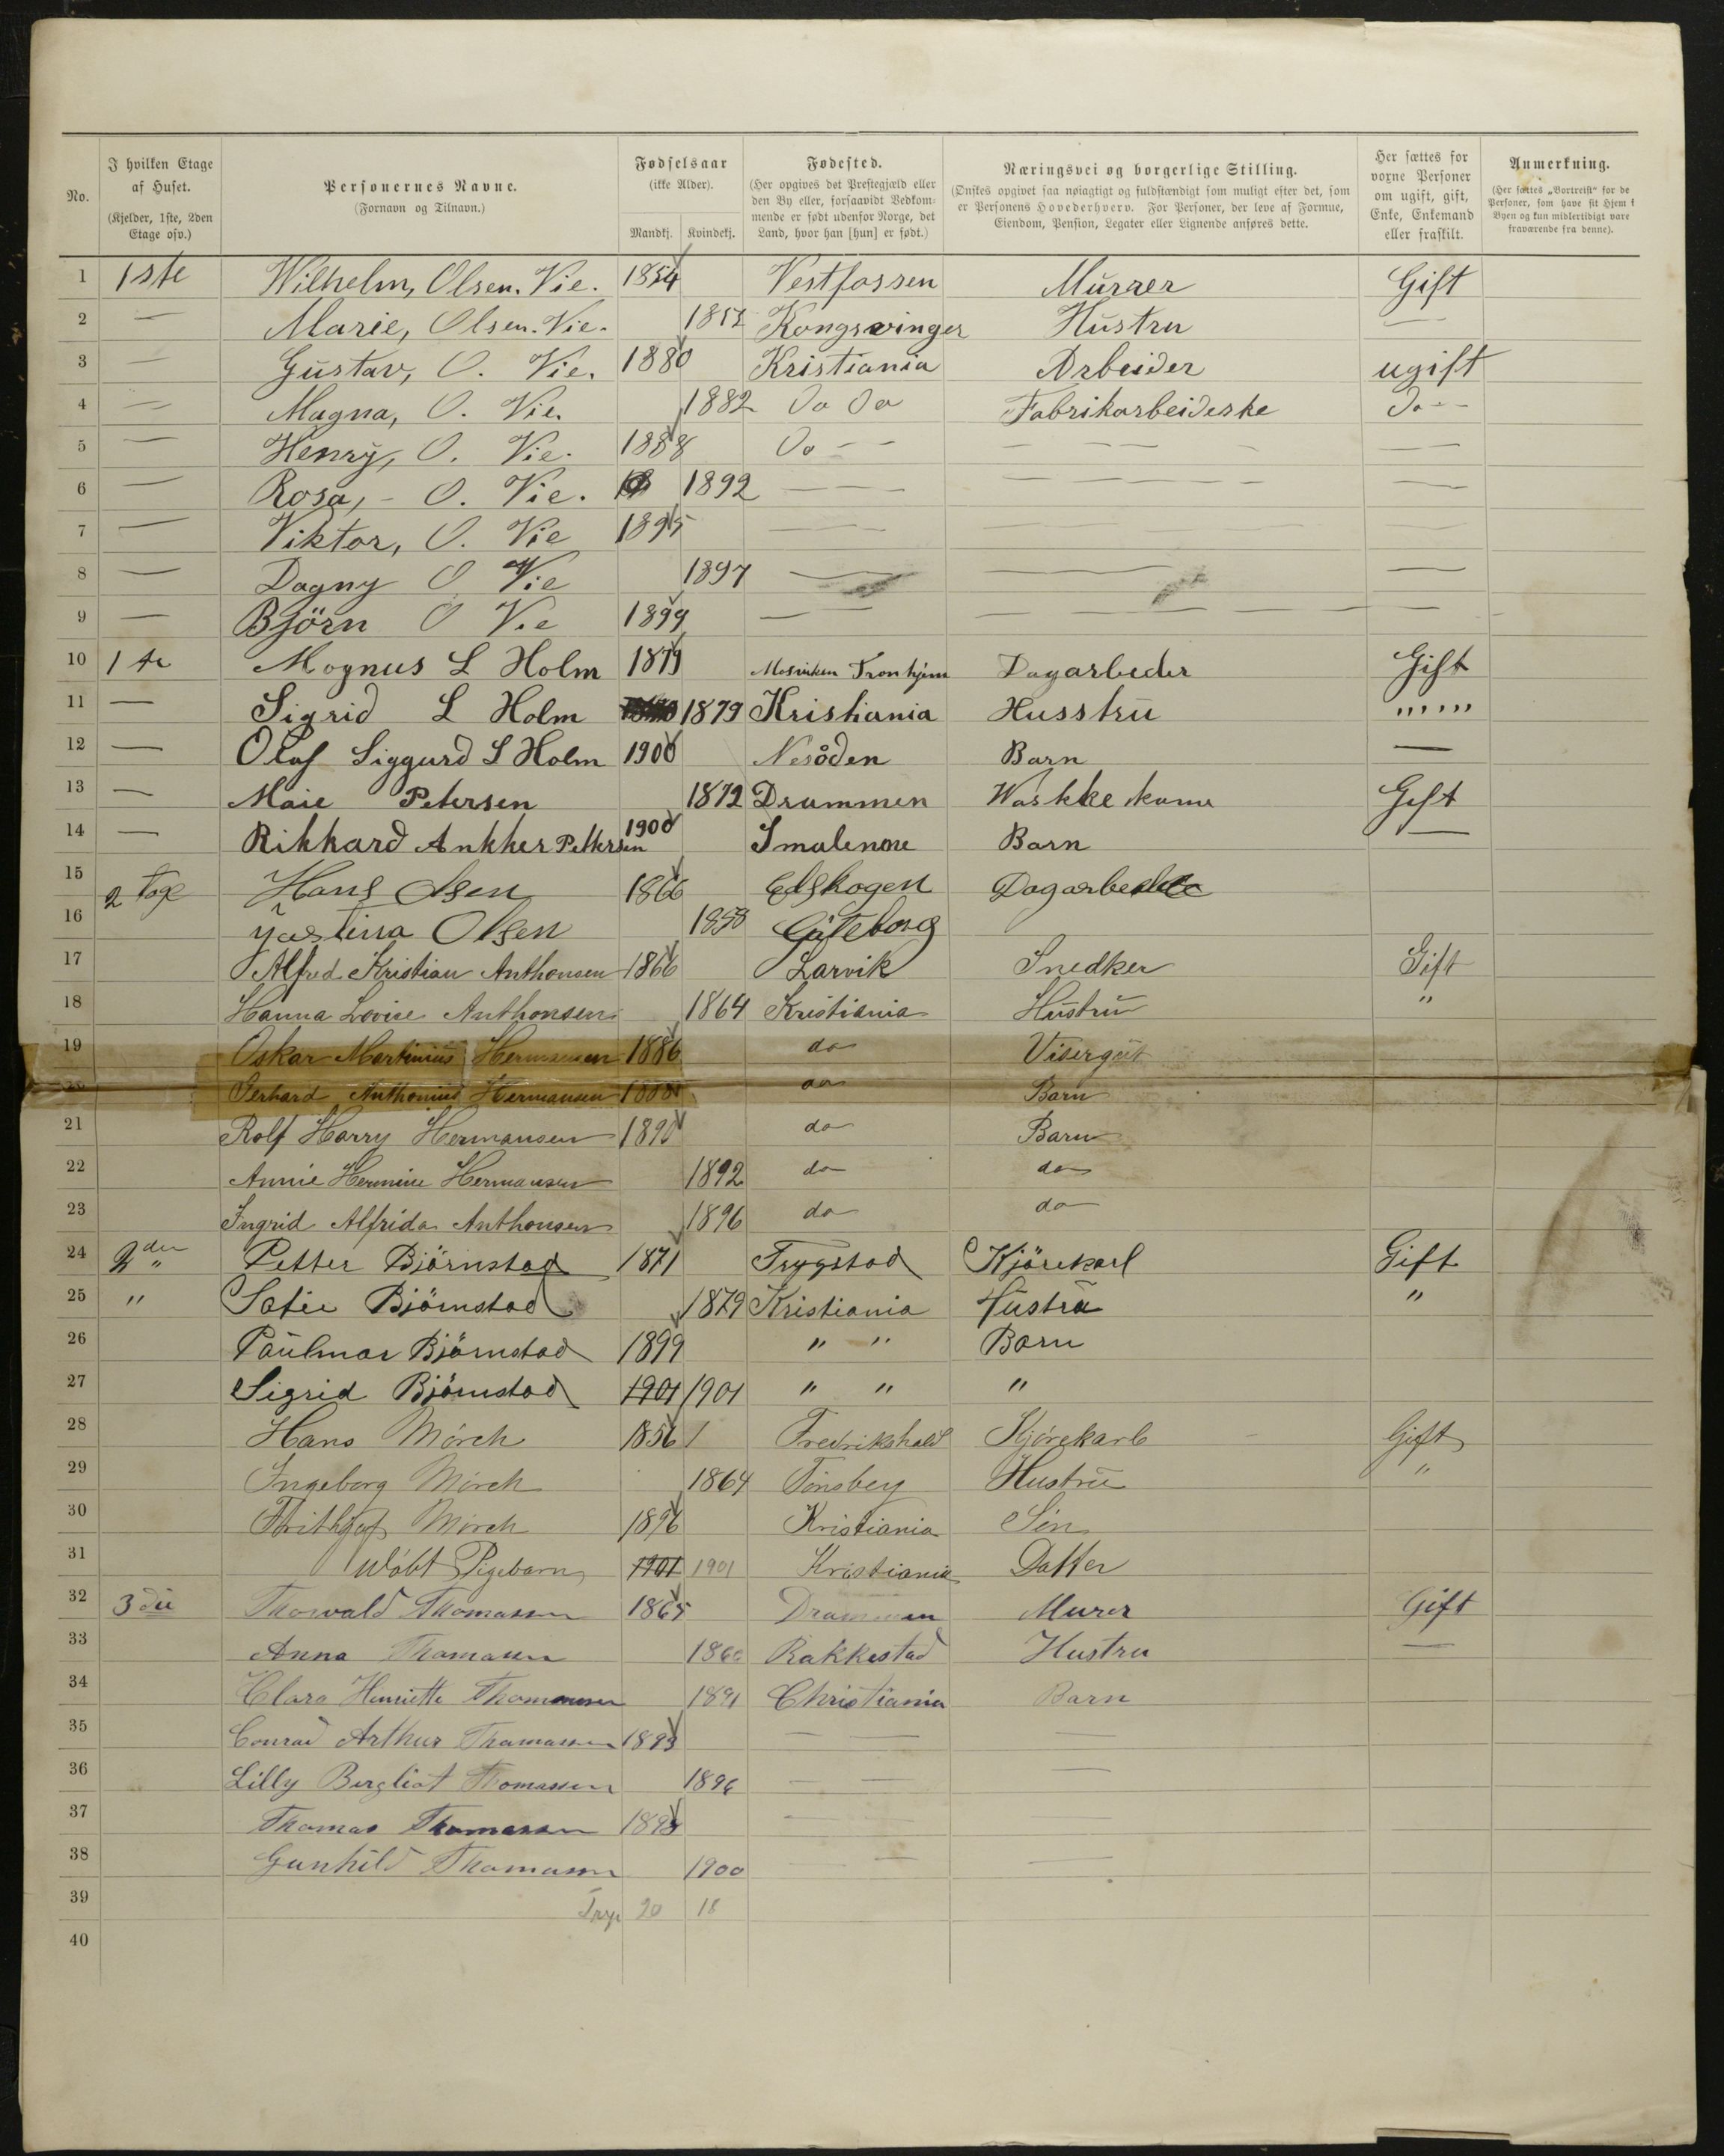 No.
I hvilken Etage af Huset. (Kjelder, 1ste, 2den Etage osv.)
Personernes Navne. (Fornavn og Tilnavn.)
Fødselsaar (ikke Alder). Mandkj. Kvindekj.
Fødested. (Her opgives det Prestegjæld eller den By eller, forsaavidt Vedkommende er født udenfor Norge, det Land, hvor han [hun] er født.)
Næringsvei og borgerlige Stilling. (Ønskes opgivet saa nøiagtigt og fuldstændigt som muligt efter det, som er Personens Hovederhverv. For Personer, der leve af Formue, Eiendom, Pension, Legater eller Lignende anføres dette.
Her sættes for voxne Personer om ugift, gift, Enke, Enkemand eller fraskilt.
Anmerkning. (Her sættes „Bortreist“ for de Personer, som have sit Hjem i Byen og kun midlertidigt vare fraværende fra denne).
1 1ste Wilhelm, Olsen. Vie. 1854 Vestfossen Murrer Gift
2 — Marie, Olsen. Vie. 1852 Kongsvinger Hustru —
3 — Gustav, O. Vie. 1880 Kristiania Arbeider ugift
4 — Magna, O. Vie. 1882 Do Do Fabrikarbeiderske Do --
5 — Henry, O. Vie. 1888 Do -- — — — —
6 — Rosa, - O. Vie. 1892 — — — —
7 — Viktor, O. Vie 1895 — — —
8 — Dagny O Vie 1897 — — —
9 — Björn O Vie 1899 — — — —
10 1 ste Magnus L Holm 1879 Mosviken Tronhjem Dagarbeder Gift
11 — Sigrid L Holm 1879 Kristiania Husstru """
12 — Olaf Siggurd L Holm 1900 Nesåden Barn —
13 — Maie Petersen 1872 Drammen Waskkekone Gift
14 — Rikkard Ankker Pettersen 1900 Smalenene Barn —
15 2 Tage Hans Olsen 1866 Edskogen Dagarbeder
16 Justina Olsen 1858 Göteborg
17 Alfred Kristian Anthonsen 1866 Larvik Snedker Gift
18 Hanna Lovise Anthonsen 1864 Kristiania Hustru "
19 Oskar Martinius Hermansen 1886 do Visergut
20 Gerhard Anthonius Hermansen 1888 do Barn
21 Rolf Harry Hermansen 1890 do Barn
22 Annie Hermine Hermansen 1892 do do
23 Ingrid Alfrida Anthonsen 1896 do do
24 2den " Petter Björnstad 1871 Trygstad Kjörekarl Gift
25 " Sofie Björnstad 1879 Kristiania Hustru "
26 Paulmar Björnstad 1899 " " Barn
27 Sigrid Björnstad 1901 1901 " " "
28 Hans Mörch 1856 Fredrikshald Kjörekarl Gift
29 Ingeborg Mörch 1864 Tönsberg Hustru "
30 Frithjof Mörch 1896 Kristiania Sön
31 Udöbt Pigebarn 1901 1901 Kristiania Datter
32 3die Thorvald Thomassen 1865 Drammen Murer Gift
33 Anna Thomassen 1860 Rakkestad Hustru —
34 Clara Henriette Thomassen 1891 Christiania Barn
35 Conrad Arthur Thomassen 1893 — —
36 Lilly Bergliot Thomassen 1896 — — —
37 Thomas Thomassen 1898 — — —
38 Gunhild Thomassen 1900 — — —
39 20 18
40